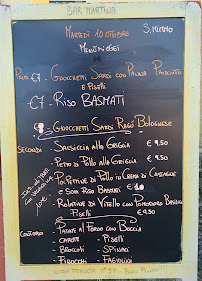 BAR MARTINA
MARTEDÌ 10 OTTOBRE S. NIMMO
MENÙ DI OGGI
PRIMI €7 - GNOCCHETTI SARDI CON PANNA PROSCIUTTO
E PISELLI
€7 - RISO BASMATI
GNOCCHETTI SARDI RAGÙ BOLOGNESE
SECONDI - SALSICCIA ALLA GRIGLIA € 9.50
- PETTO DI POLLO ALLA GRIGLIA € 9.50
- POLPETTINE DI POLLO IN CREMA DI
E SOIA RISO BASMATI € 10
- ROLATINE DI VITELLO CON POMODORO BASILICO
PISELLI € 9.50
CONTORNI - PATATE AL FORNO CON BUCCIA
- CAROTE - PISELLI
- BROCCOLI - SPINACI
- FINOCCHI - FAGIOLINI